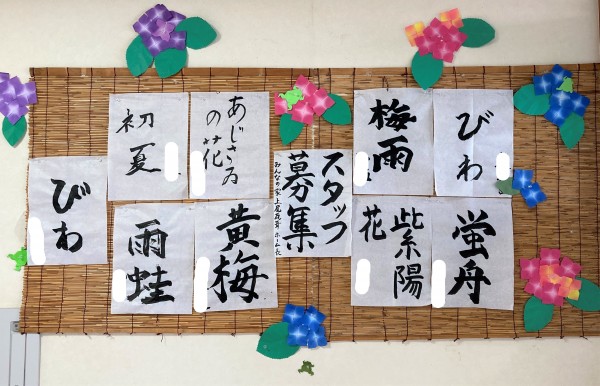 びわ
蛍舟
梅雨
紫陽
花
スタッフ
募集
みんなの家上尾 ホーム長
あじさゐ
の花
黄梅
初夏
雨蛙
びわ